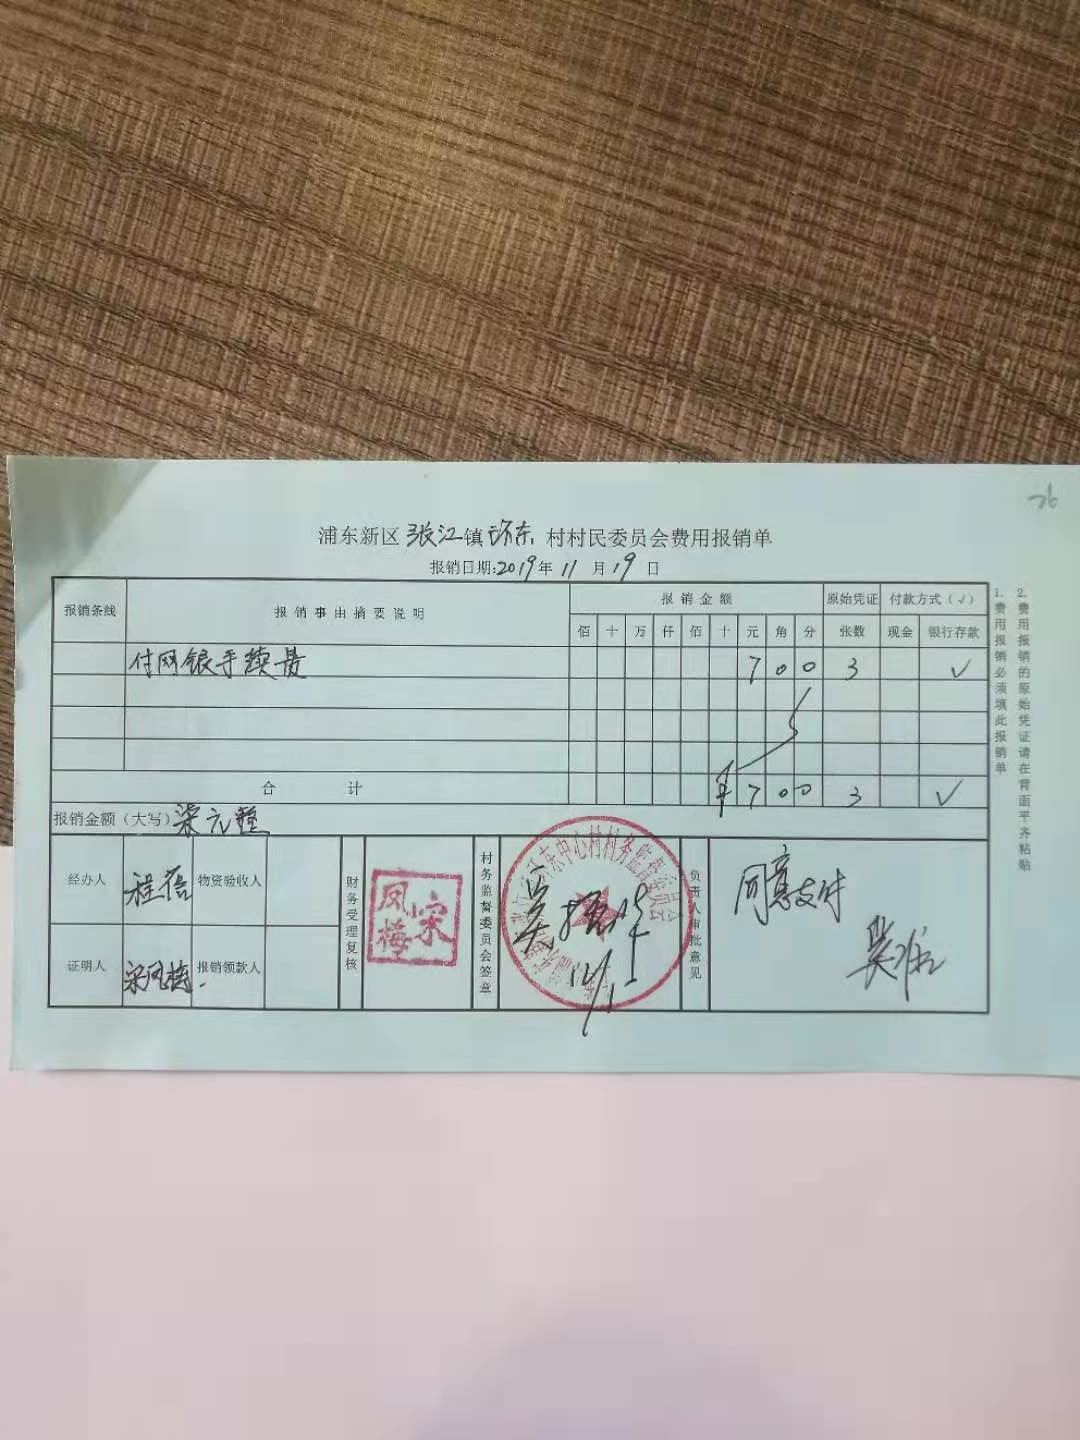 26
浦东新区张江镇环东村村民委员会费用报销单
报销日期:2019年11月19日
报销条线 报销事由摘要说明 报销金额 原始凭证 付款方式(√)
佰 十 万 仟 佰 十 元 角 分 张数 现金 银行存款
付网银手续费 7 0 0 3 √
合计 ¥ 7 0 0 3 √
报销金额(大写) 柒元整
经办人 程蓓 物资验收人
证明人 宋凤梅. 报销领款人
财务受理复核
宋凤梅
村务监督委员会签章
环东中心村村务监督委员会
12/11
负责人审批意见
同意支付
1.费用报销必须填此报销单
2.费用报销的原始凭证请在背面平齐粘贴